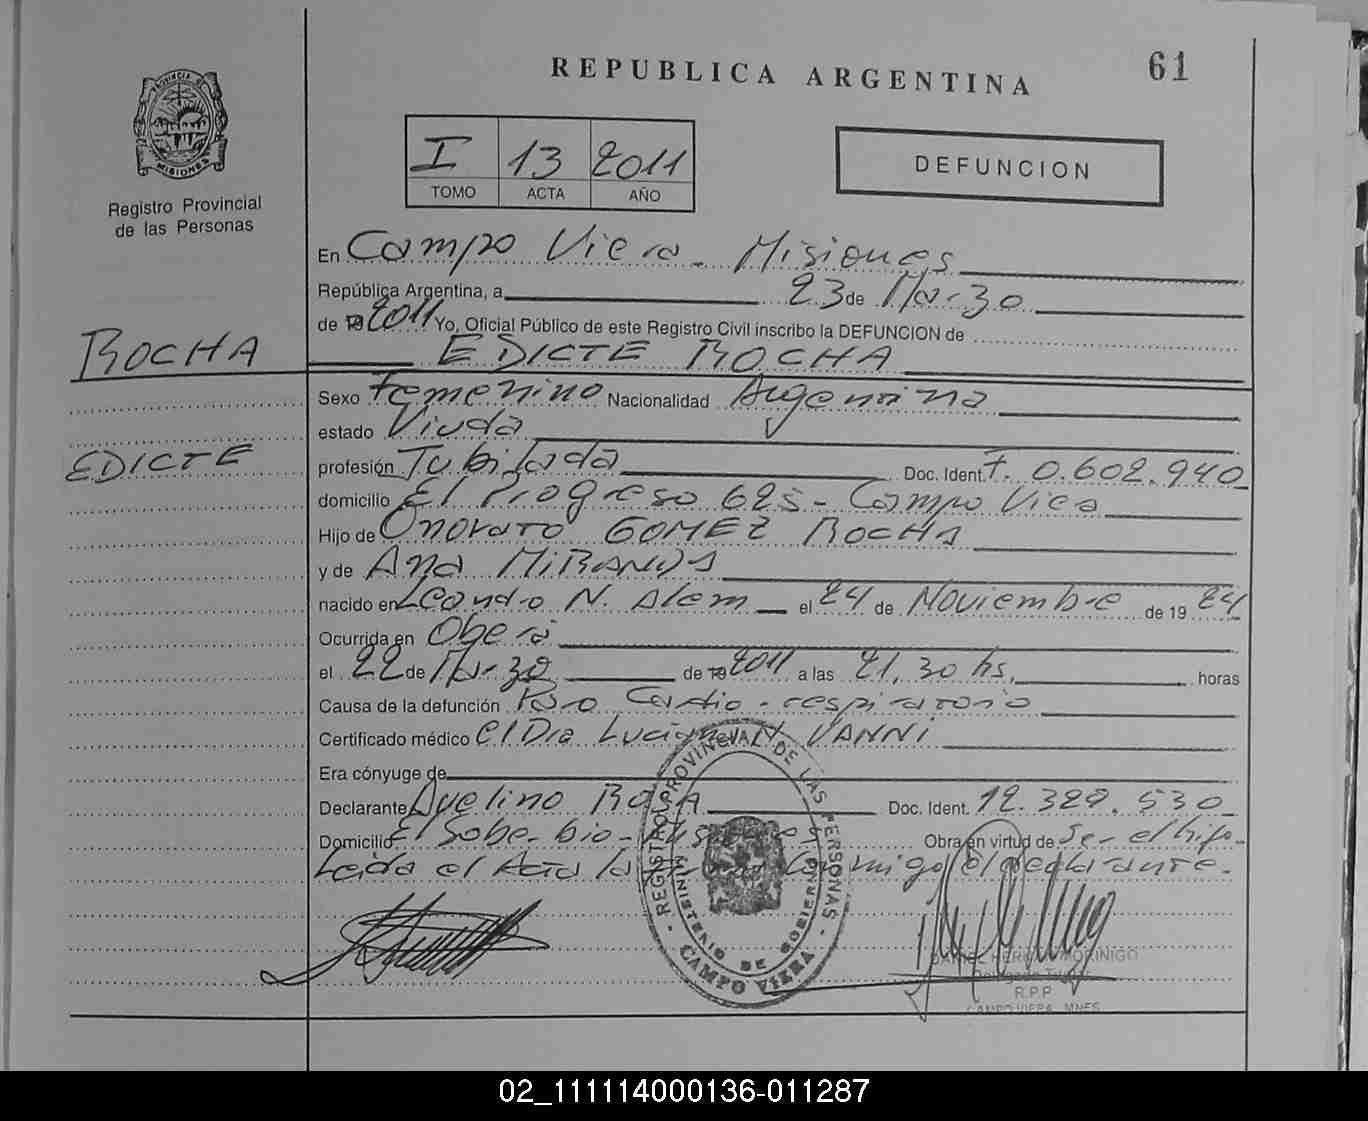 REPUBLICA ARGENTINA
61
PROVINCIA DE
MISIONES
Registro Provincial
de las Personas
I 13 2011
TOMO ACTA AÑO
DEFUNCION
En Campo Viera - Misiones
República Argentina, a 23 de Marzo
de 19 2011 Yo, Oficial Público de este Registro Civil inscribo la DEFUNCION de
ROCHA
EDICTE ROCHA
Sexo Femenino Nacionalidad Argentina
estado Viuda
EDICTE
profesión Jubilada Doc. Ident. F. 0.602.940
domicilio El Progreso 625 - Campo Viera
Hijo de Onorato GOMEZ ROCHA
y de Ana MIRANDA
nacido en Leandro N. Alem el 24 de Noviembre de 19 24
Ocurrida en Oberá
el 22 de Marzo de 19 2011 a las 21,30 hs, horas
Causa de la defunción Paro Cardio-respiratorio
Certificado médico el Dra Luciana N. VANNI
Era cónyuge de
Declarante Avelino ROSA Doc. Ident. 12.329.530
Domicilio El Soberbio - Obra en virtud de Ser el hijo-
Leida el Acta la conmigo el declarante.
REGISTRO PROVINCIAL DE LAS PERSONAS
MINISTERIO DE GOBIERNO
CAMPO VIERA
MORINIGO
R.P.P
CAMPO VIERA MNES
02_111114000136-011287